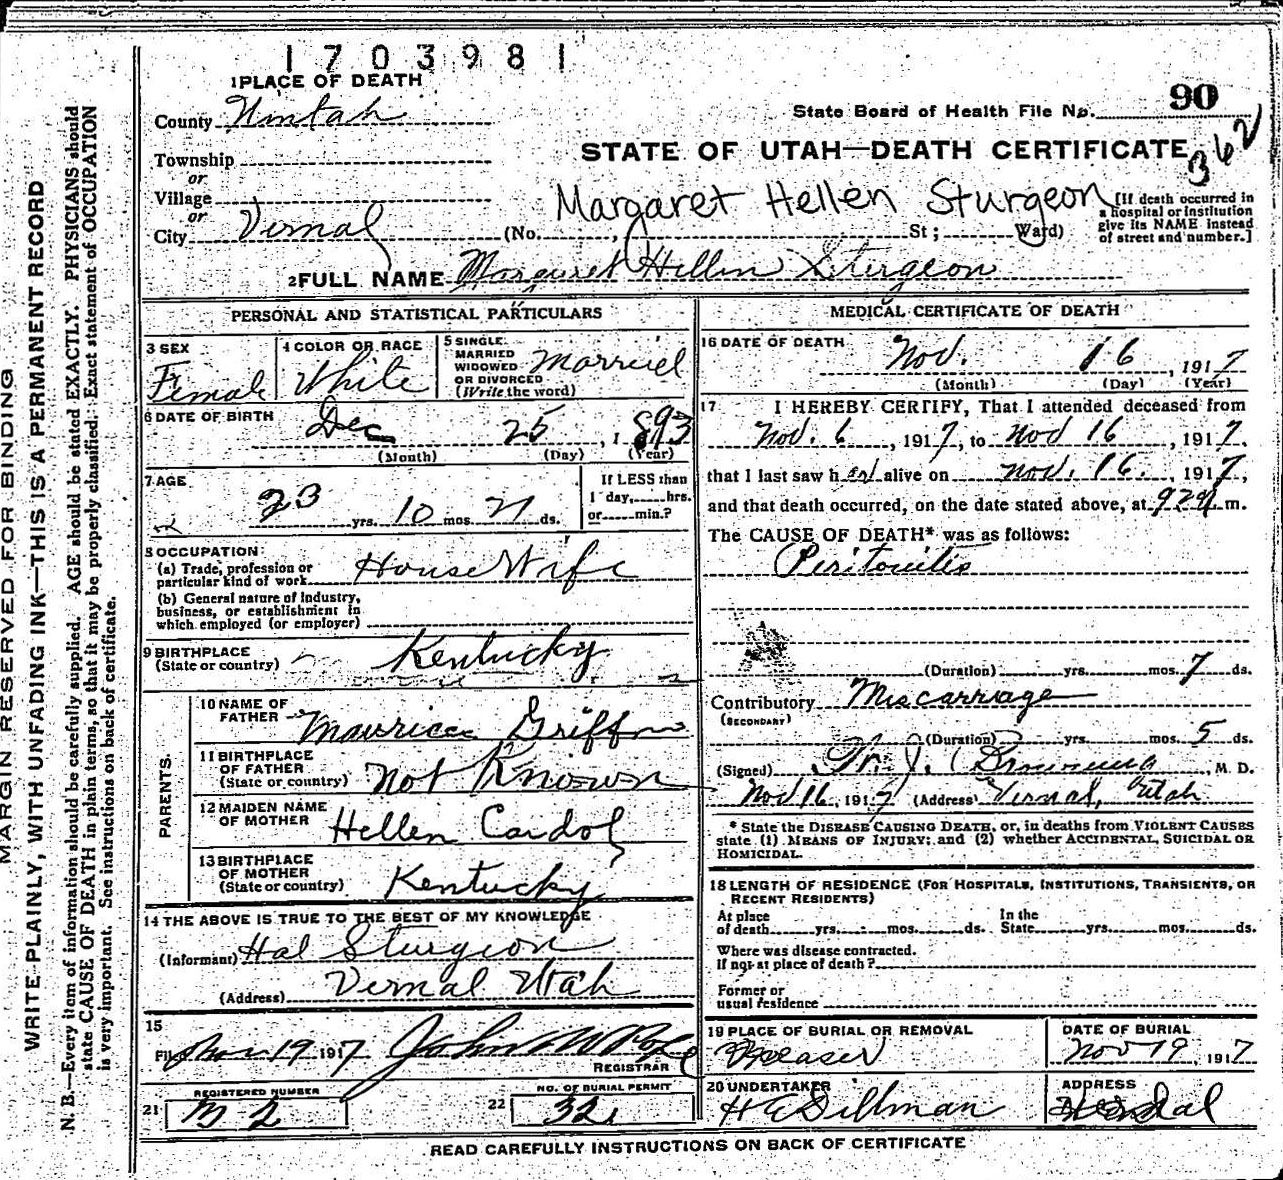 1703981
1 PLACE OF DEATH
County Uintah
State Board of Health File No. 90
362
Township
or
STATE OF UTAH—DEATH CERTIFICATE
Village
or
Margaret Hellen Sturgeon
[If death occurred in
a hospital or institution
give its NAME instead
of street and number.]
City Vernal (No. , St; Ward)
2 FULL NAME Margaret Hellen Sturgeon
PERSONAL AND STATISTICAL PARTICULARS
3 SEX
Female
4 COLOR OR RACE
White
5 SINGLE
MARRIED
WIDOWED
OR DIVORCED
(Write the word)
Married
6 DATE OF BIRTH
Dec 25, 1893
(Month) (Day) (Year)
7 AGE
23 yrs. 10 mos. 21 ds.
If LESS than
1 day, hrs.
or min.?
8 OCCUPATION
(a) Trade, profession or
particular kind of work House Wife
(b) General nature of industry,
business, or establishment in
which employed (or employer)
9 BIRTHPLACE
(State or country) Kentucky
PARENTS.
10 NAME OF
FATHER Maurice Griffin
11 BIRTHPLACE
OF FATHER
(State or country) Not Known
12 MAIDEN NAME
OF MOTHER Hellen
13 BIRTHPLACE
OF MOTHER
(State or country) Kentucky
14 THE ABOVE IS TRUE TO THE BEST OF MY KNOWLEDGE
(Informant) Hal Sturgeon
(Address) Vernal Utah
15
Filed Nov 19 1917 John W Pope
REGISTRAR
REGISTERED NUMBER
21
NO. OF BURIAL PERMIT
22 32
MEDICAL CERTIFICATE OF DEATH
16 DATE OF DEATH
Nov. 16, 1917
(Month) (Day) (Year)
17 I HEREBY CERTIFY, That I attended deceased from
Nov. 6, 1917, to Nov 16, 1917,
that I last saw her alive on Nov. 16, 1917,
and that death occurred, on the date stated above, at m.
The CAUSE OF DEATH* was as follows:
Peritonitis
(Duration) yrs. mos. 7 ds.
Contributory Miscarriage
(SECONDARY)
(Duration) yrs. mos. 5 ds.
(Signed) J. Browning, M. D.
Nov 16, 1917 (Address) Vernal, Utah
* State the DISEASE CAUSING DEATH, or, in deaths from VIOLENT CAUSES
state (1) MEANS OF INJURY; and (2) whether ACCIDENTAL, SUICIDAL OR
HOMICIDAL.
18 LENGTH OF RESIDENCE (FOR HOSPITALS, INSTITUTIONS, TRANSIENTS, OR
RECENT RESIDENTS)
At place
of death yrs. mos. ds.
In the
State yrs. mos. ds.
Where was disease contracted.
If not at place of death?
Former or
usual residence
19 PLACE OF BURIAL OR REMOVAL
DATE OF BURIAL
Nov 19 1917
20 UNDERTAKER
H E Dillman
ADDRESS
READ CAREFULLY INSTRUCTIONS ON BACK OF CERTIFICATE
MARGIN RESERVED FOR BINDING
WRITE PLAINLY, WITH UNFADING INK—THIS IS A PERMANENT RECORD
N. B.—Every item of information should be carefully supplied. AGE should be stated EXACTLY. PHYSICIANS should
state CAUSE OF DEATH in plain terms, so that it may be properly classified. Exact statement of OCCUPATION
is very important. See instructions on back of certificate.